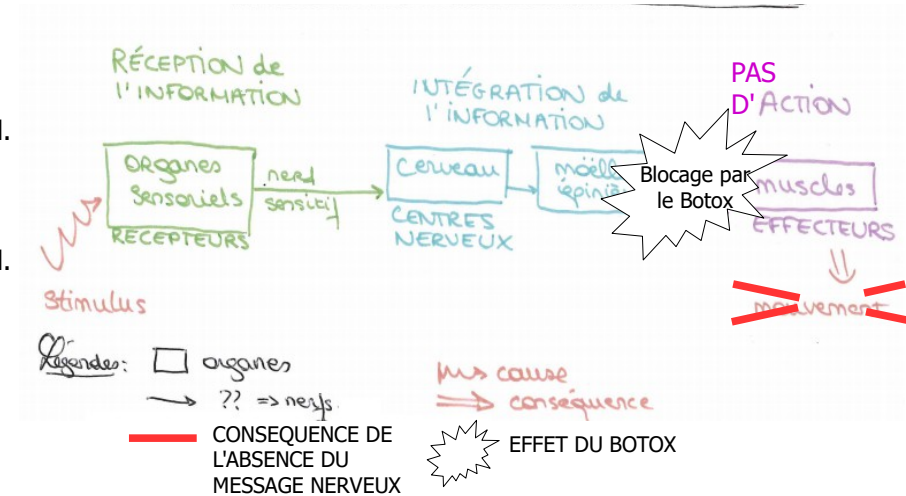 RÉCEPTION de
l'INFORMATION
INTÉGRATION de
l'INFORMATION
PAS
D'ACTION
l.
organes
sensoriels
nerf
sensitif
Cerveau
moëll
épiniè
Blocage par
le Botox
muscles
RECEPTEURS
CENTRES
NERVEUX
EFFECTEURS
l.
Stimulus
mouvement
Légendes:
organes
?? => nerfs.
cause
conséquence
CONSEQUENCE DE
L'ABSENCE DU
MESSAGE NERVEUX
EFFET DU BOTOX